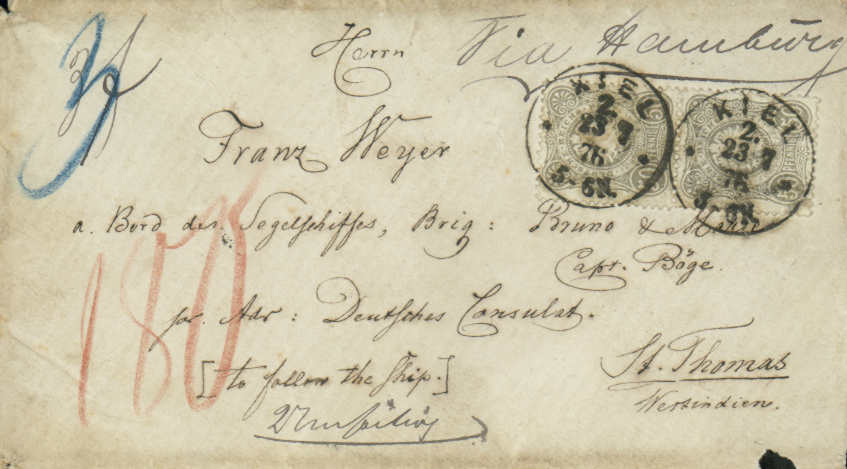 Via Hamburg
Herrn
Franz Weyer
a. Bord des Segelschiffes, Brig: Bruno & Marie
Capt. Böge.
pr. Adr: Deutsches Consulat.
St. Thomas
Westindien.
[to follow the ship.]
KIEL
2.
23 7
76
5-6N.
KIEL
2.
23 7
76
5-6N.
3
180